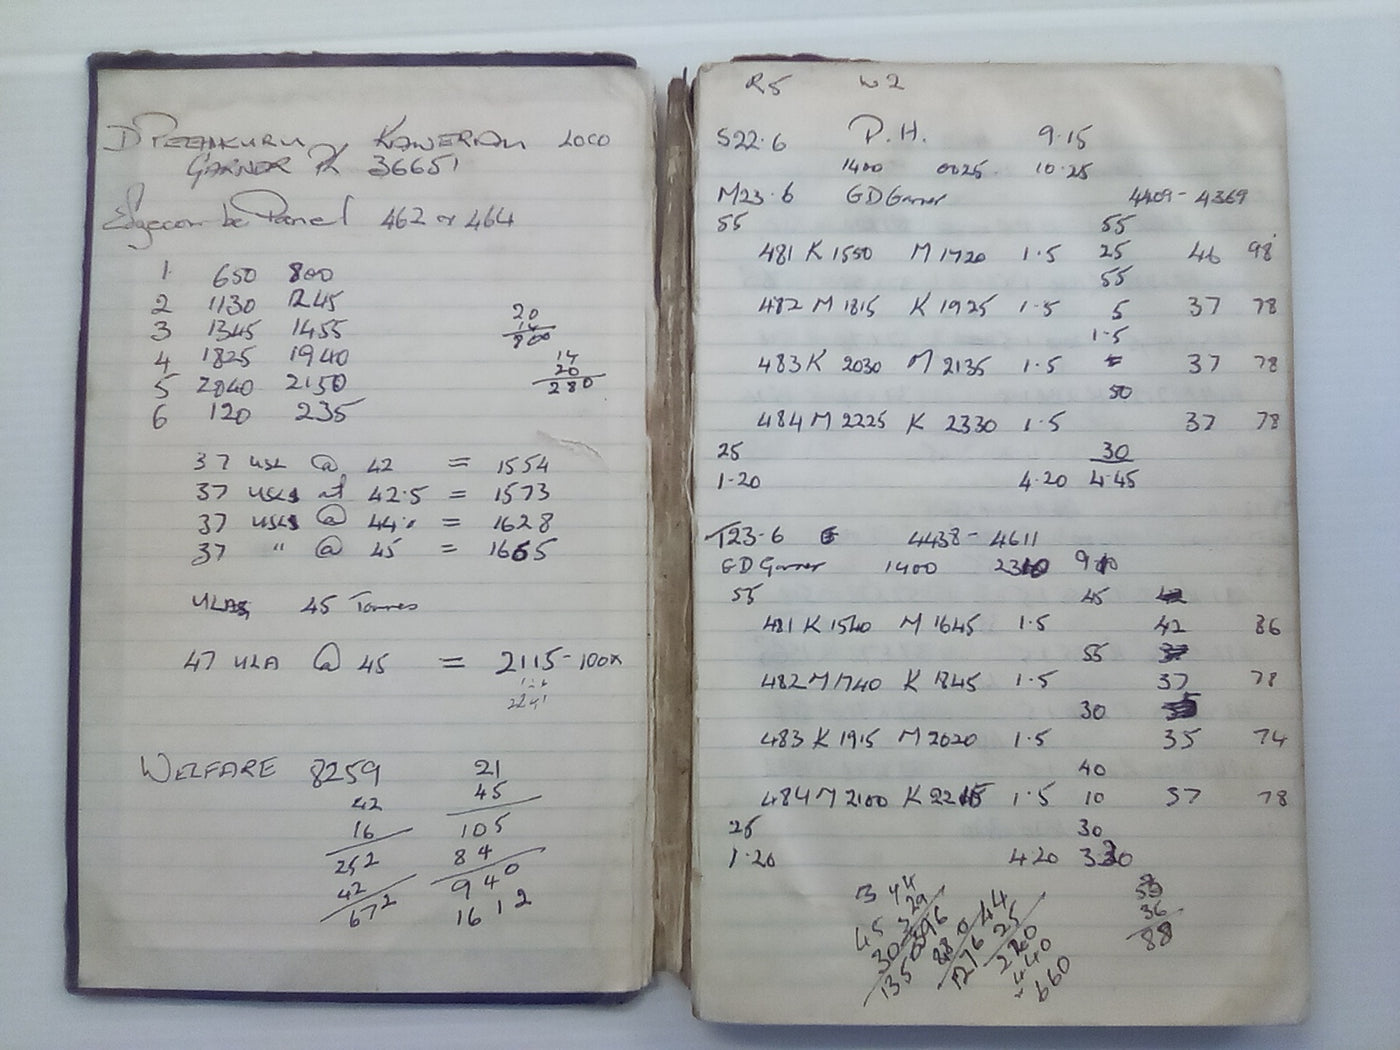 KAWERAU LOCO
36651
Edgecombe Panel 462 or 464
1 650 800
2 1130 1245
3 1345 1455
4 1825 1940
5 2040 2150
6 120 235
20
14
800
14
20
280
37 USL @ 42 = 1554
37 USLs at 42.5 = 1573
37 USLs @ 44. = 1628
37 " @ 45 = 1665
45 Tonnes
47 ULA @ 45 = 2115-100x
WELFARE 8259
42
16
252
42
672
21
45
105
84
940
1612
R5 W2
S22.6 P.H. 9.15
1400 0025 10.25
M23.6 GD Garner 4409-4369
55 55
481 K 1550 M 1720 1.5 25 46 98
55
482 M 1815 K 1925 1.5 5 37 78
1.5
483 K 2030 M 2135 1.5 37 78
50
484 M 2225 K 2330 1.5 37 78
25 30
1.20 4.20 4.45
T23.6 4438-4611
GD Garner 1400 2310 910
55 45
481 K 1540 M 1645 1.5 42 86
55
482 M 1740 K 1845 1.5 37 78
30
483 K 1915 M 2020 1.5 35 74
40
484 M 2100 K 2215 1.5 10 37 78
25 30
1.20 4.20 3.30
44
29
396
880
1276
45
30
1350
44
25
220
440
660
36
88